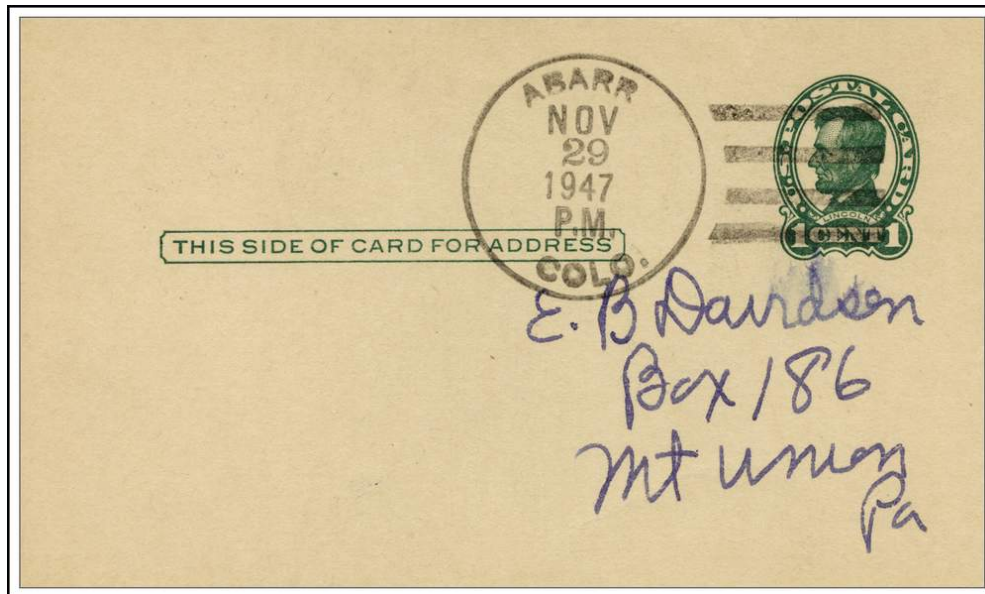 ABARR
NOV
29
1947
P.M.
COLO.
U.S. POSTAL CARD
LINCOLN
1 CENT 1
THIS SIDE OF CARD FOR ADDRESS
E. B Davidson
Box 186
Mt Union
Pa